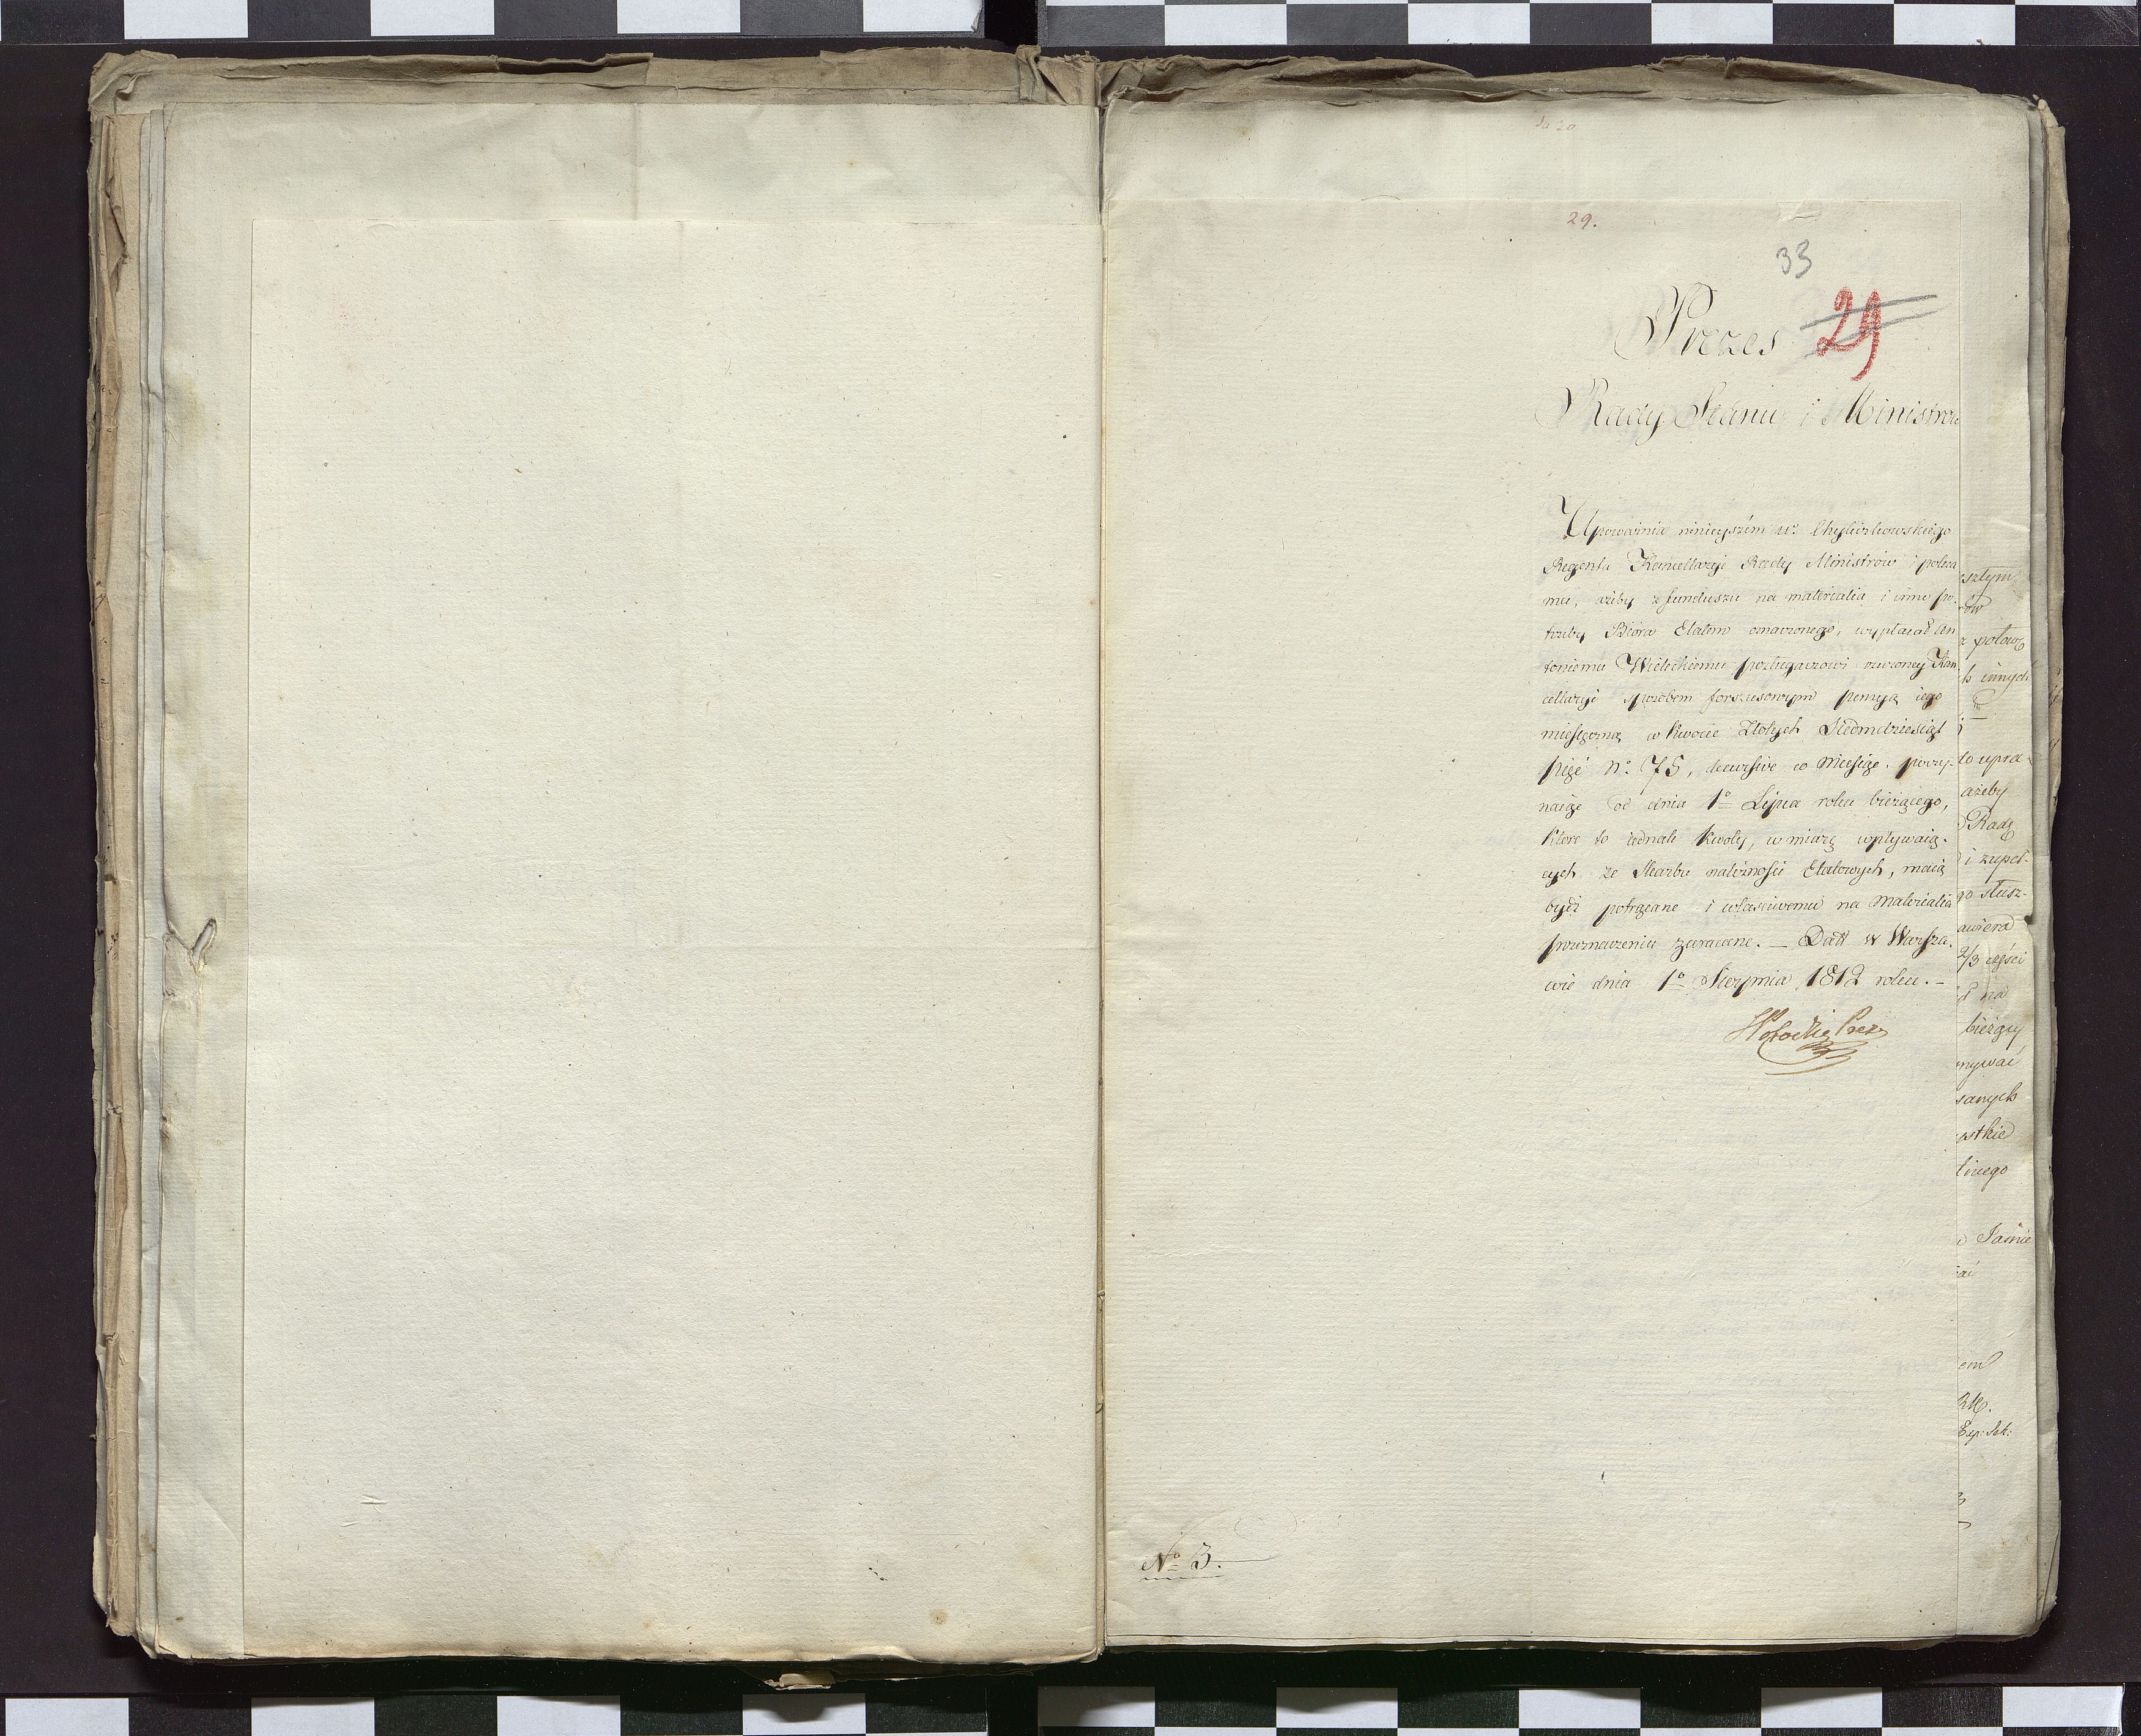 29.
33
29
Prezes
Rady Stanu i Ministrów
Upoważnia ninieyszém W.
Regenta Kancellaryi Rady Ministrów i poleca
mu, ażeby z funduszu na materialia i inne po-
trzeby Bióra Etatem oznaczonego, wypłacał An
toniemu Wieleckiemu posługaczowi rzeczoney Kan
cellaryi sposobem forszusowym pensyą iego
miesięczną w kwocie Złotych Siedmdziesiąt
pięć No. 75, decursive co Miesiąc, poczy-
naiąc od dnia 1o Lipca roku bieżącego,
które to iednak kwoty, w miarę wpływaią-
cych ze Skarbu należności Etatowych, maią
bydź potrącane i właściwemu na Materialia
przeznaczeniu zwracane. — Datt w Warsza-
wie dnia 1o Sierpnia 1812 roku. —
No 3.
sztym
rów
połowę
h innych
to upra
ażeby
Radę
i zupeł-
go słusz-
awiera
2/3 części
na
bieżący
nywać
sanych
stkie
licego
Jaśnie
em
RM.
Exp: Sek: